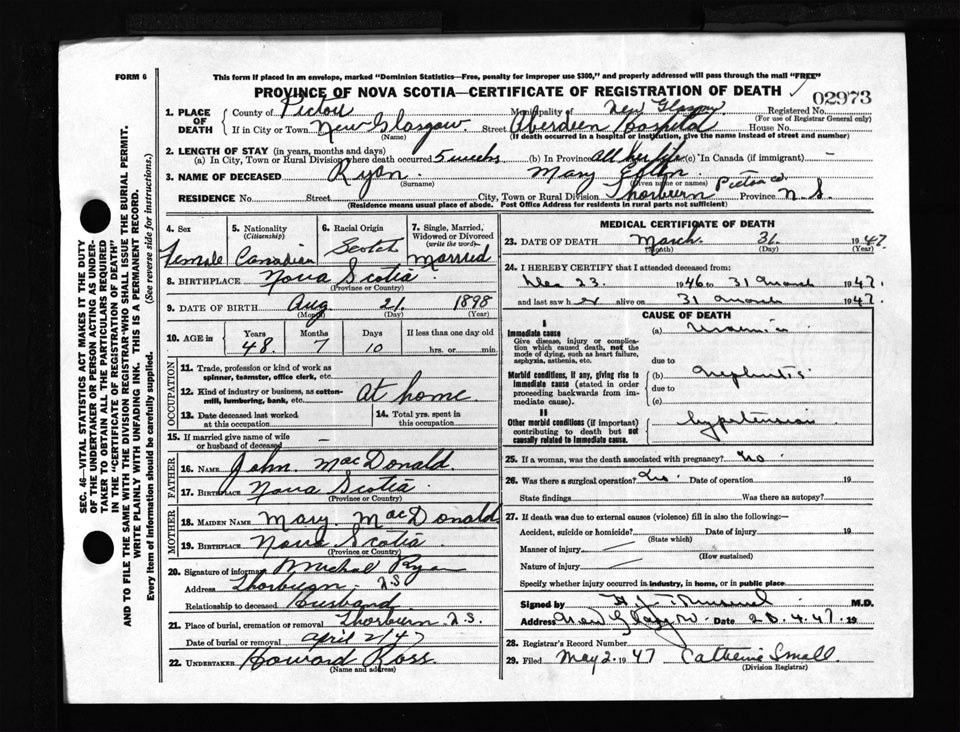 FORM 6
This form if placed in an envelope, marked "Dominion Statistics—Free, penalty for improper use $300," and properly addressed will pass through the mail "FREE"
PROVINCE OF NOVA SCOTIA—CERTIFICATE OF REGISTRATION OF DEATH
02973
1. PLACE OF DEATH
County of Pictou Municipality of New Glasgow Registered No.
(For use of Registrar General only)
If in City or Town New Glasgow. Street Aberdeen Hospital House No.
(Name) (If death occurred in a hospital or institution, give the name instead of street and number)
2. LENGTH OF STAY (in years, months and days)
(a) In City, Town or Rural Division where death occurred 5 weeks (b) In Province All her life (c) In Canada (if immigrant) —
3. NAME OF DECEASED Ryan. Mary
(Surname) (Given name or names)
RESIDENCE No. Street City, Town or Rural Division Thorburn Pictou Co. Province N S.
(Residence means usual place of abode. Post Office Address for residents in rural parts not sufficient)
4. Sex
Female
5. Nationality
(Citizenship)
Canadian
6. Racial Origin
Scotch
7. Single, Married, Widowed or Divorced
(write the word)
Married
8. BIRTHPLACE Nova Scotia
(Province or Country)
9. DATE OF BIRTH Aug 21 1898
(Month) (Day) (Year)
10. AGE in Years Months Days If less than one day old
48. 7 10 hrs. or min.
OCCUPATION
11. Trade, profession or kind of work as spinner, teamster, office clerk, etc.
12. Kind of industry or business, as cotton-mill, lumbering, bank, etc. At home.
13. Date deceased last worked at this occupation
14. Total yrs. spent in this occupation
15. If married give name of wife or husband of deceased —
FATHER
16. NAME John. MacDonald.
17. BIRTHPLACE Nova Scotia
(Province or Country)
MOTHER
18. MAIDEN NAME Mary. MacDonald
19. BIRTHPLACE Nova Scotia
(Province or Country)
20. Signature of informant Michael Ryan
Address Thorburn. N.S.
Relationship to deceased Husband.
21. Place of burial, cremation or removal Thorburn. N.S.
Date of burial or removal April 2/47
22. UNDERTAKER Howard Ross.
(Name and address)
MEDICAL CERTIFICATE OF DEATH
23. DATE OF DEATH March. 31. 1947.
(Month) (Day) (Year)
24. I HEREBY CERTIFY that I attended deceased from:
Dec 23. 1946 to 31 March 1947.
and last saw her alive on 31 March 1947.
CAUSE OF DEATH
I
Immediate cause (a) Uraemia
Give disease, injury or complication which caused death, not the mode of dying, such as heart failure, asphyxia, asthenia, etc.
due to
Morbid conditions, if any, giving rise to immediate cause (stated in order proceeding backwards from immediate cause).
(b) Nephritis
due to
(c)
II
Other morbid conditions (if important) contributing to death but not causally related to immediate cause.
hypertension
25. If a woman, was the death associated with pregnancy? No
26. Was there a surgical operation? No. Date of operation 19
State findings Was there an autopsy?
27. If death was due to external causes (violence) fill in also the following:—
Accident, suicide or homicide? Date of injury 19
(State which)
Manner of injury
(How sustained)
Nature of injury
Specify whether injury occurred in industry, in home, or in public place
Signed by M.D.
Address New Glasgow. Date 28.4.47. 19
28. Registrar's Record Number
29. Filed May 2. 1947 Catherine Small.
(Division Registrar)
SEC. 46—VITAL STATISTICS ACT MAKES IT THE DUTY
OF THE UNDERTAKER OR PERSON ACTING AS UNDER-
TAKER TO OBTAIN ALL THE PARTICULARS REQUIRED
IN THE "CERTIFICATE OF REGISTRATION OF DEATH"
AND TO FILE THE SAME WITH THE DIVISION REGISTRAR WHO SHALL ISSUE THE BURIAL PERMIT.
WRITE PLAINLY WITH UNFADING INK. THIS IS A PERMANENT RECORD.
Every item of information should be carefully supplied. (See reverse side for instructions.)